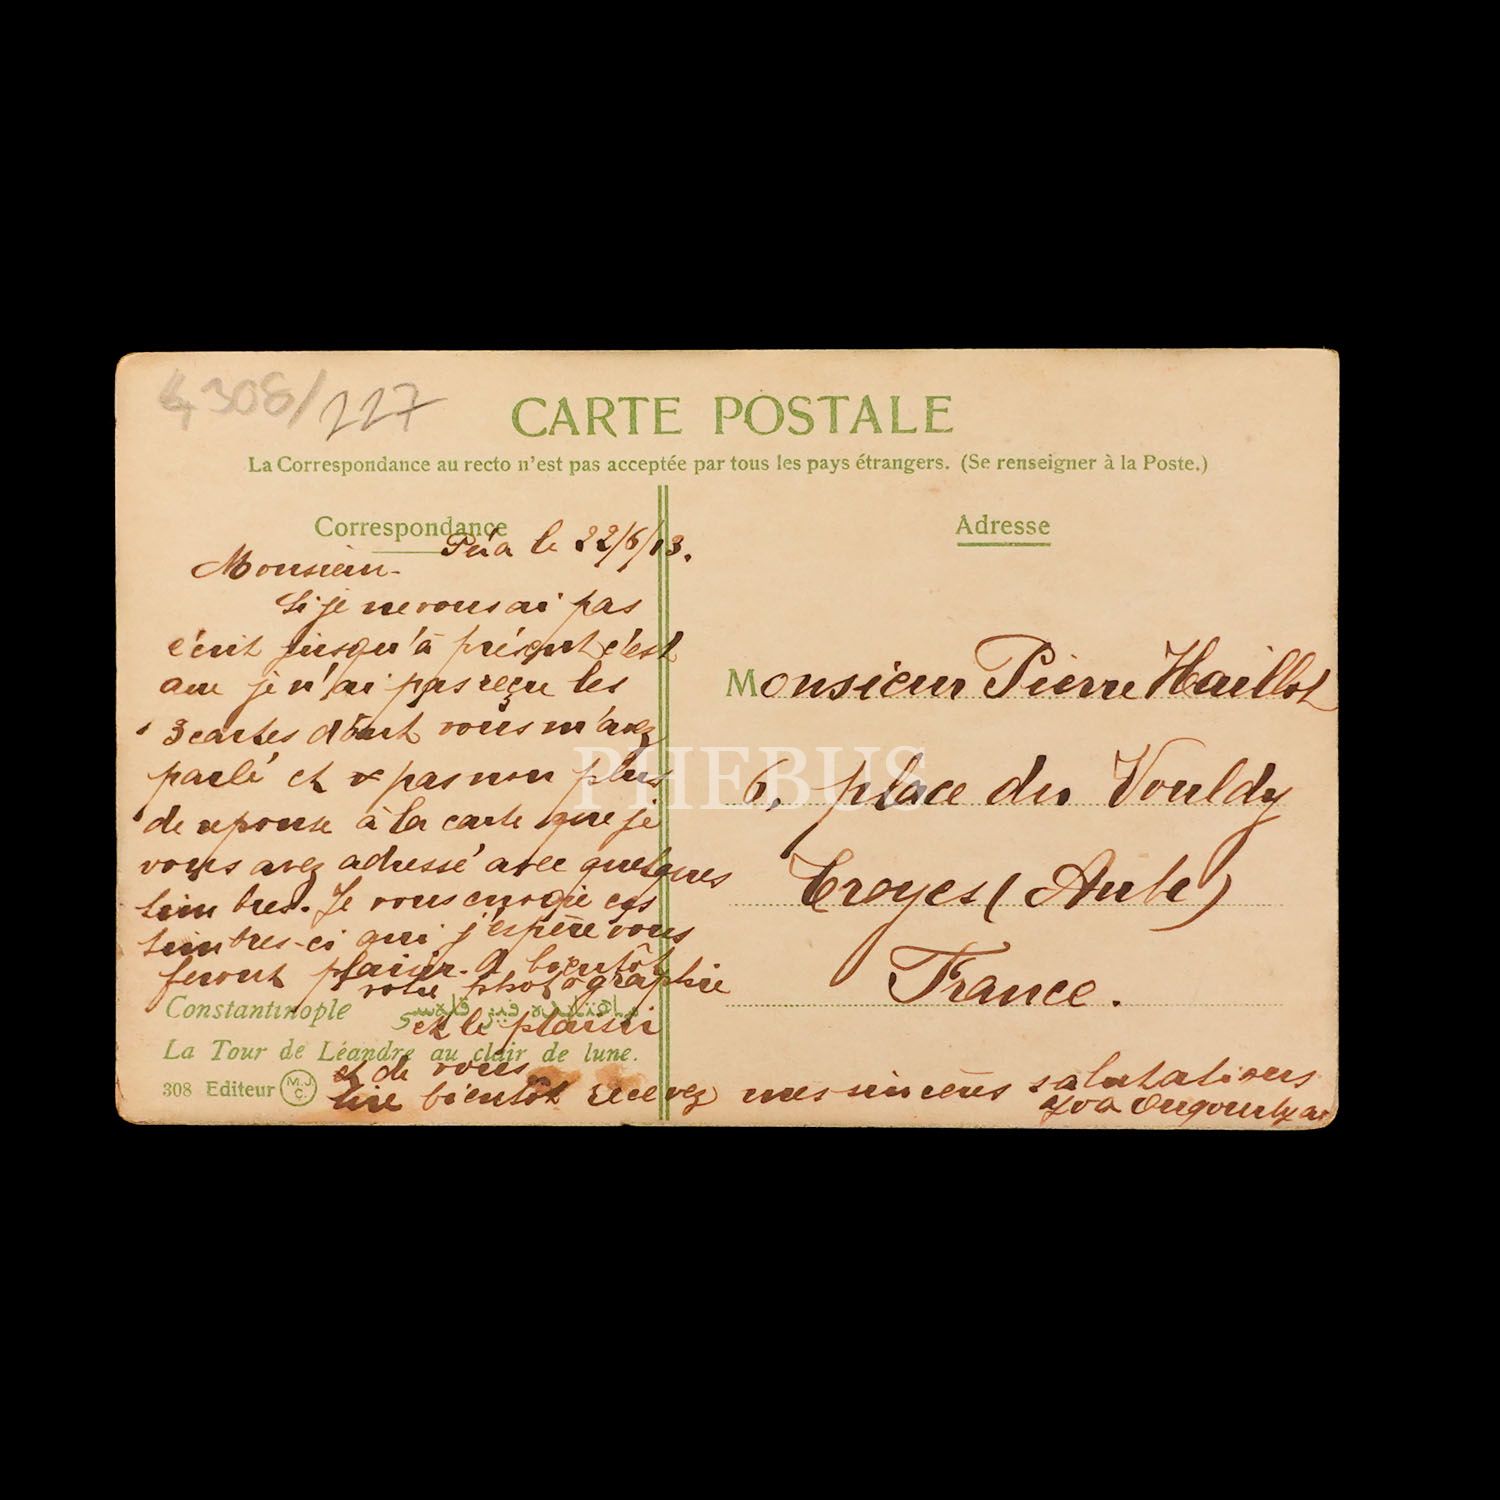 4308/227
CARTE POSTALE
La Correspondance au recto n'est pas acceptée par tous les pays étrangers. (Se renseigner à la Poste.)
Correspondance
Péra le 22/6/13.
Monsieur
Si je ne vous ai pas
écrit jusqu'à présent c'est
que je n'ai pas reçu les
3 cartes dont vous m'avez
parlé et pas non plus
de reponse à la carte que je
vous avez adressé avec quelques
timbres. Je vous envoie ces
timbres-ci qui j'espère vous
feront plaisir. A bientôt
votre photographie
et le plaisir
et de vous
lire bientôt recevez mes sincères salutations
Constantinople
La Tour de Léandre au clair de lune.
308 Editeur M.J.C.
Adresse
Monsieur Pierre Haillot
6, place du Vouldy
Troyes (Aube)
France.
PHEBUS